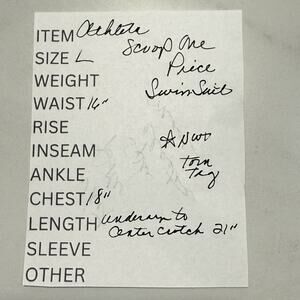 ITEM Athleta
Scoop One
Price
Swimsuit
SIZE L
WEIGHT
WAIST 16"
RISE
☆ NWT
INSEAM
Torn
Tag
ANKLE
CHEST 18"
LENGTH underarm to
center crotch 21"
SLEEVE
OTHER